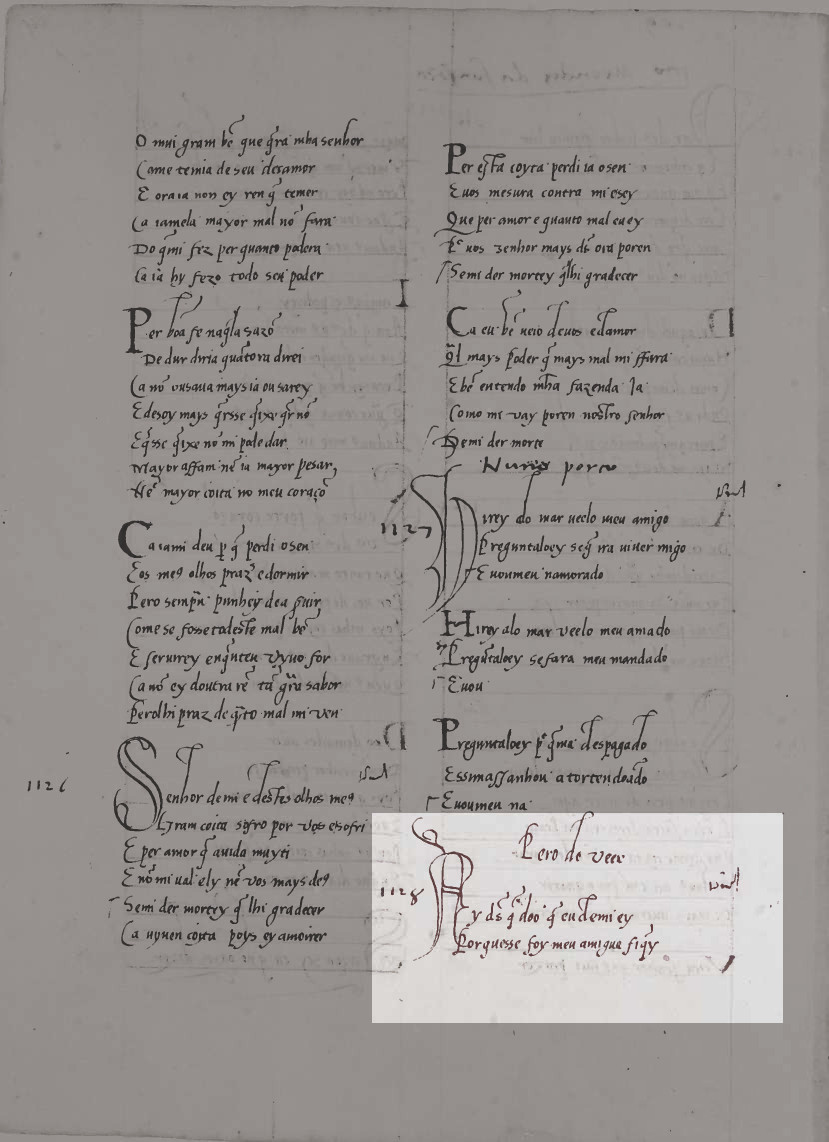 O mui gram bẽ que q̃ra mha senhor
Come temia de seu desamor
E ora ia non ey ren q̃ temer
Ca iamela mayor mal nõ fara
Do q̃mi fez per quanto podera
Ca ia hy fezo todo seu poder
Per boa fe naq̃la sazõ
De dur diria quãtora direi
Ca nõ ousava mays ia ousarey
E desoy mays q̃rsse q̃ixe q̃r nõ
E q̃sse q̃ixe nõ mi pode dar
Mayor affam nẽ ia mayor pesar
Nẽ mayor coita no meu coraçõ
Ca iami deu p q̃ perdi o sen
Eos me9 olhos praz̃ e dormir
Pero semp̃ punhey de a s̃uir
Come se fosse todeste mal bẽ
E seruirey enq̃nteu vyuo for
Ca nõ ey doutra rẽ tã grã sabor
Perolhi praz de q̃to mal mi ven
1126
Senhor de mi e destes olhos me9
Gram coita sofro por vos e sofri
E per amor q̃ auida muyti
E nõ mi ual ely nẽ vos mays de9
Semi der mortey q̃ lhi gradecer
Ca uyuen coita poys ey a moirer
Per esta coyta perdi ia o sen
Euos mesura contra mi esey
Que per amor e quanto mal eu ey
Pe uos senhor mays ds̃ ora poren
Semi der mortey q̃lhi gradecer
Ca eu bẽ ueio de uos e damor
Q̃l mays poder q̃ mays mal mi ffara
E bẽ entendo mha fazenda Ja
Como mi vay poren nostro senhor
Semi der morte
Nuno porco
1127
Irey alo mar veelo meu amigo
Preguntaloey seq̃rra uiuer migo
E uoumeu namorado
Hirey alo mar veelo meu amado
Preguntaloey se fara meu mandado
E uou
Preguntaloey pe q̃ ma despagado
Essi massanhou a torten doado
E uoumeu na
Pero de veer
1128
Ay ds̃ q̃ doo q̃ eu de mi ey
Porquesse foy meu amigue fiq̃y